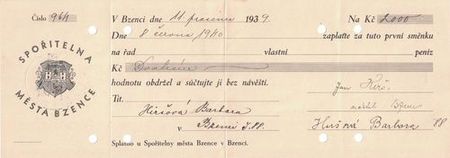 Číslo 964 V Bzenci dne 11 prosince 1939. Na Kč 2000
Dne 8 června 1940 zaplaťte za tuto první směnku
na řad vlastní peníz
Kč
hodnotu obdržel a súčtujte ji bez návěští.
SPOŘITELNA
MĚSTA BZENCE
Tit. Jan
Hiršová Barbora
v Bzenci č. 88 Barbora 88
Splatno u Spořitelny města Bzence v Bzenci.